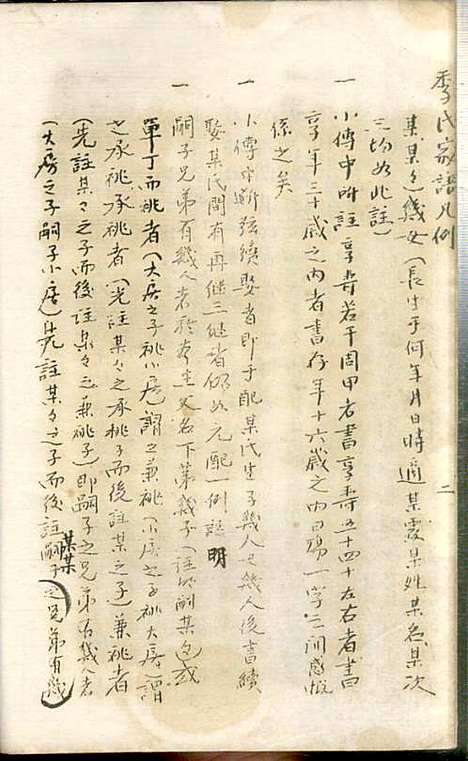 李氏家譜凡例
某某之幾女(長生于何年月日時適某處某姓某名某次
三均如此註)
一 小傳中附註享壽若干周甲者書享壽五十四十左右者書
享年三十歲之內者書存年十六歲之內曰殤一字之間感慨
係之矣
一 小傳中斷弦續娶者即于配某氏生子幾人女幾人後書續
娶某氏間有再継三継者仍如元配一例註明
一 嗣子兄弟有幾人者於本生父名下第幾子(註明嗣某)或
單丁而祧者(大房之子祧小房謂之兼祧小房之子祧大房謂
之承祧承祧者(先註某之承祧子而後註某之子)兼祧者
(先註某之子而後註某之兼祧子)即嗣子之兄弟有幾人者
(大房之子嗣子小房)先註某之子而後註嗣子某某之兄弟有幾
二